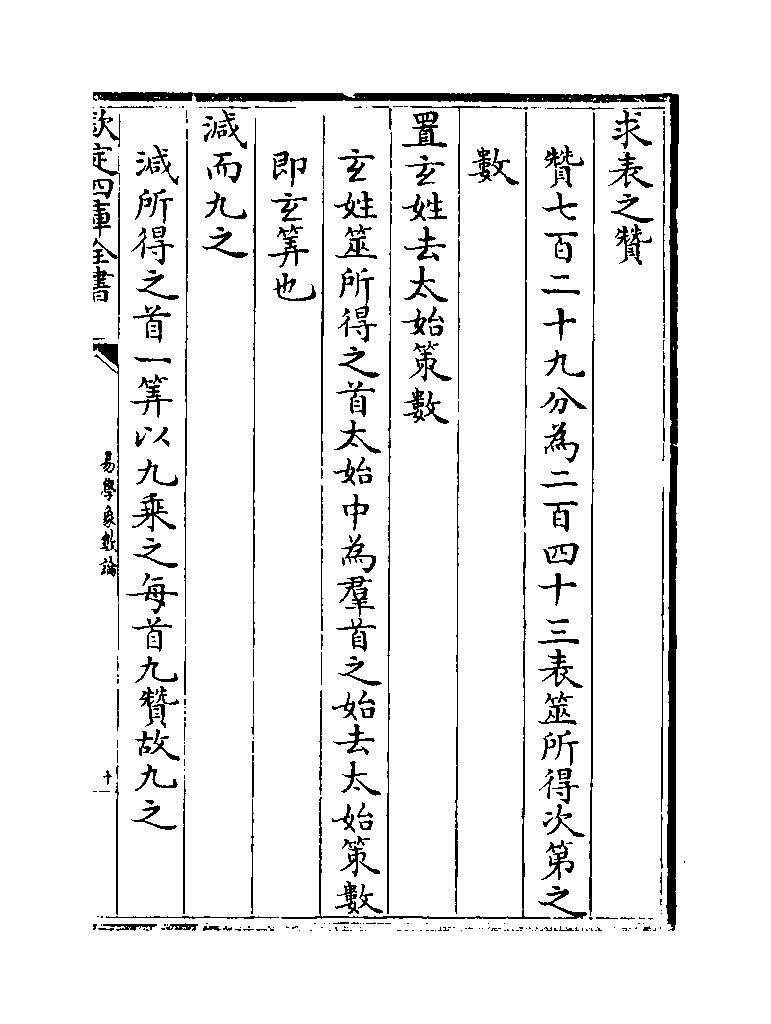 求表之贊
贊七百二十九分為二百四十三表筮所得次第之
數
置玄姓去太始策數
玄姓筮所得之首太始中為羣首之始去太始策數
即玄筭也
減而九之
減所得之首一筭以九乘之每首九贊故九之
欽定四庫全書
易學象數論
十